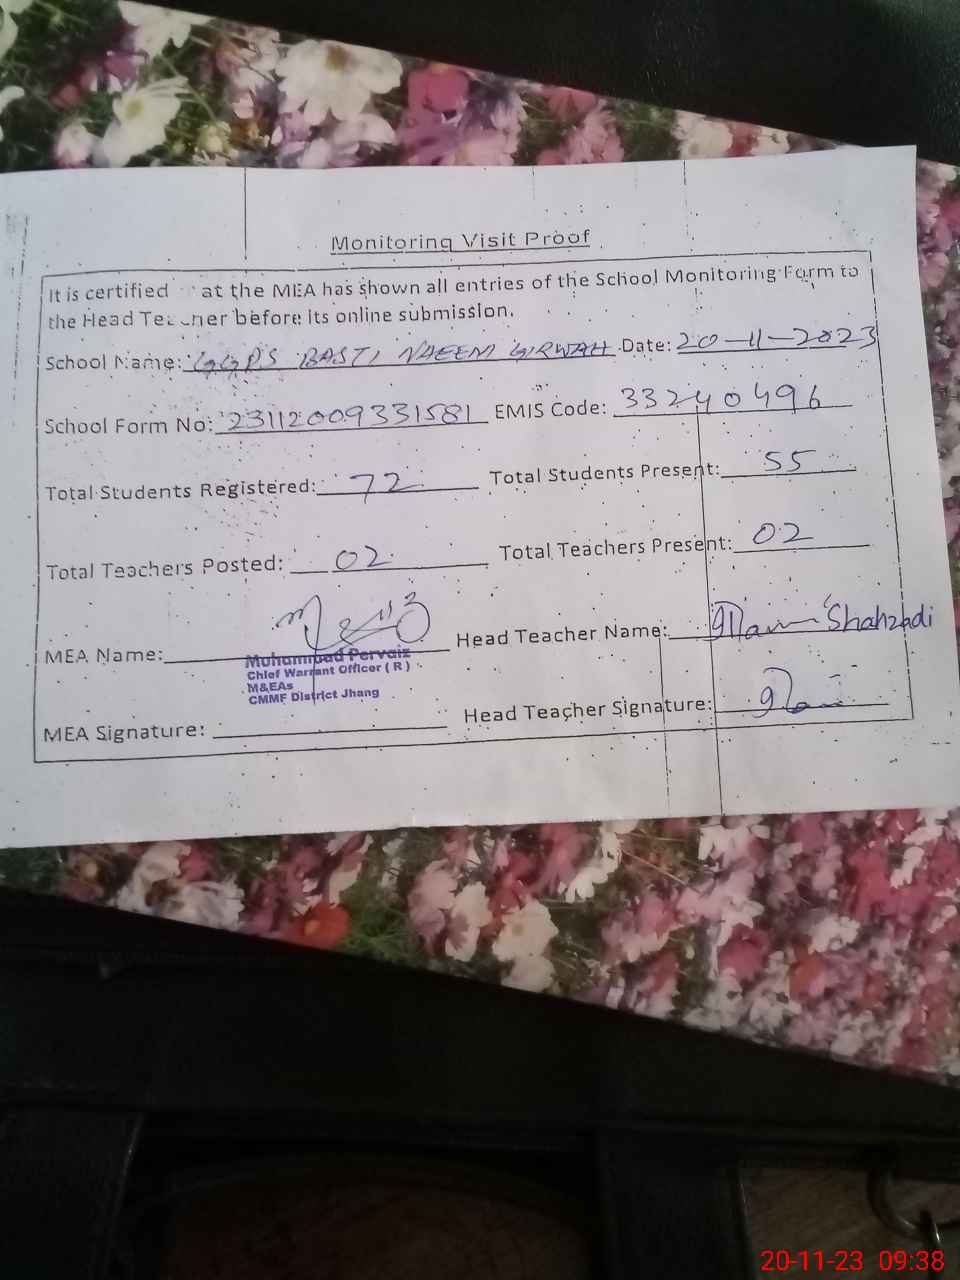 Monitoring Visit Proof
It is certified at the MEA has shown all entries of the School Monitoring Form to
the Head Teacher before its online submission.
School Name: GGPS BASTI NAEEM GIRWAH Date: 20-11-2023
School Form No: 23112009331581 EMIS Code: 33240496
Total Students Registered: 72 Total Students Present: 55
Total Teachers Posted: 02 Total Teachers Present: 02
MEA Name: Head Teacher Name: Shahzadi
Muhammad Pervaiz
Chief Warrant Officer ( R )
M&EAs
CMMF District Jhang
MEA Signature: Head Teacher Signature:
20-11-23 09:38